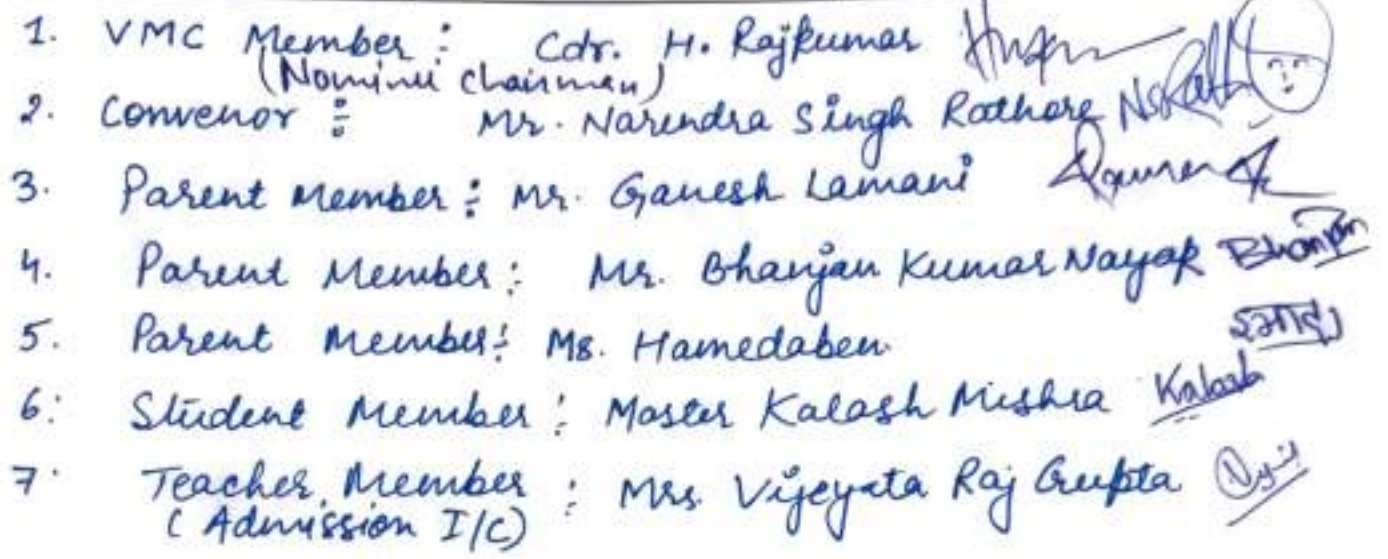 1. VMC Member : Cdr. H. Rajkumar
(Nominee Chairman)
2. Convenor : Mr. Narendra Singh Rathore NSRath
3. Parent Member : Mr. Ganesh Lamani
4. Parent Member : Mr. Bhanjan Kumar Nayak Bhanjan
5. Parent Member : Ms. Hamedaben
6: Student Member : Master Kalash Mishra Kalash
7. Teacher Member : Mrs. Vijeyata Raj Gupta
(Admission I/C)